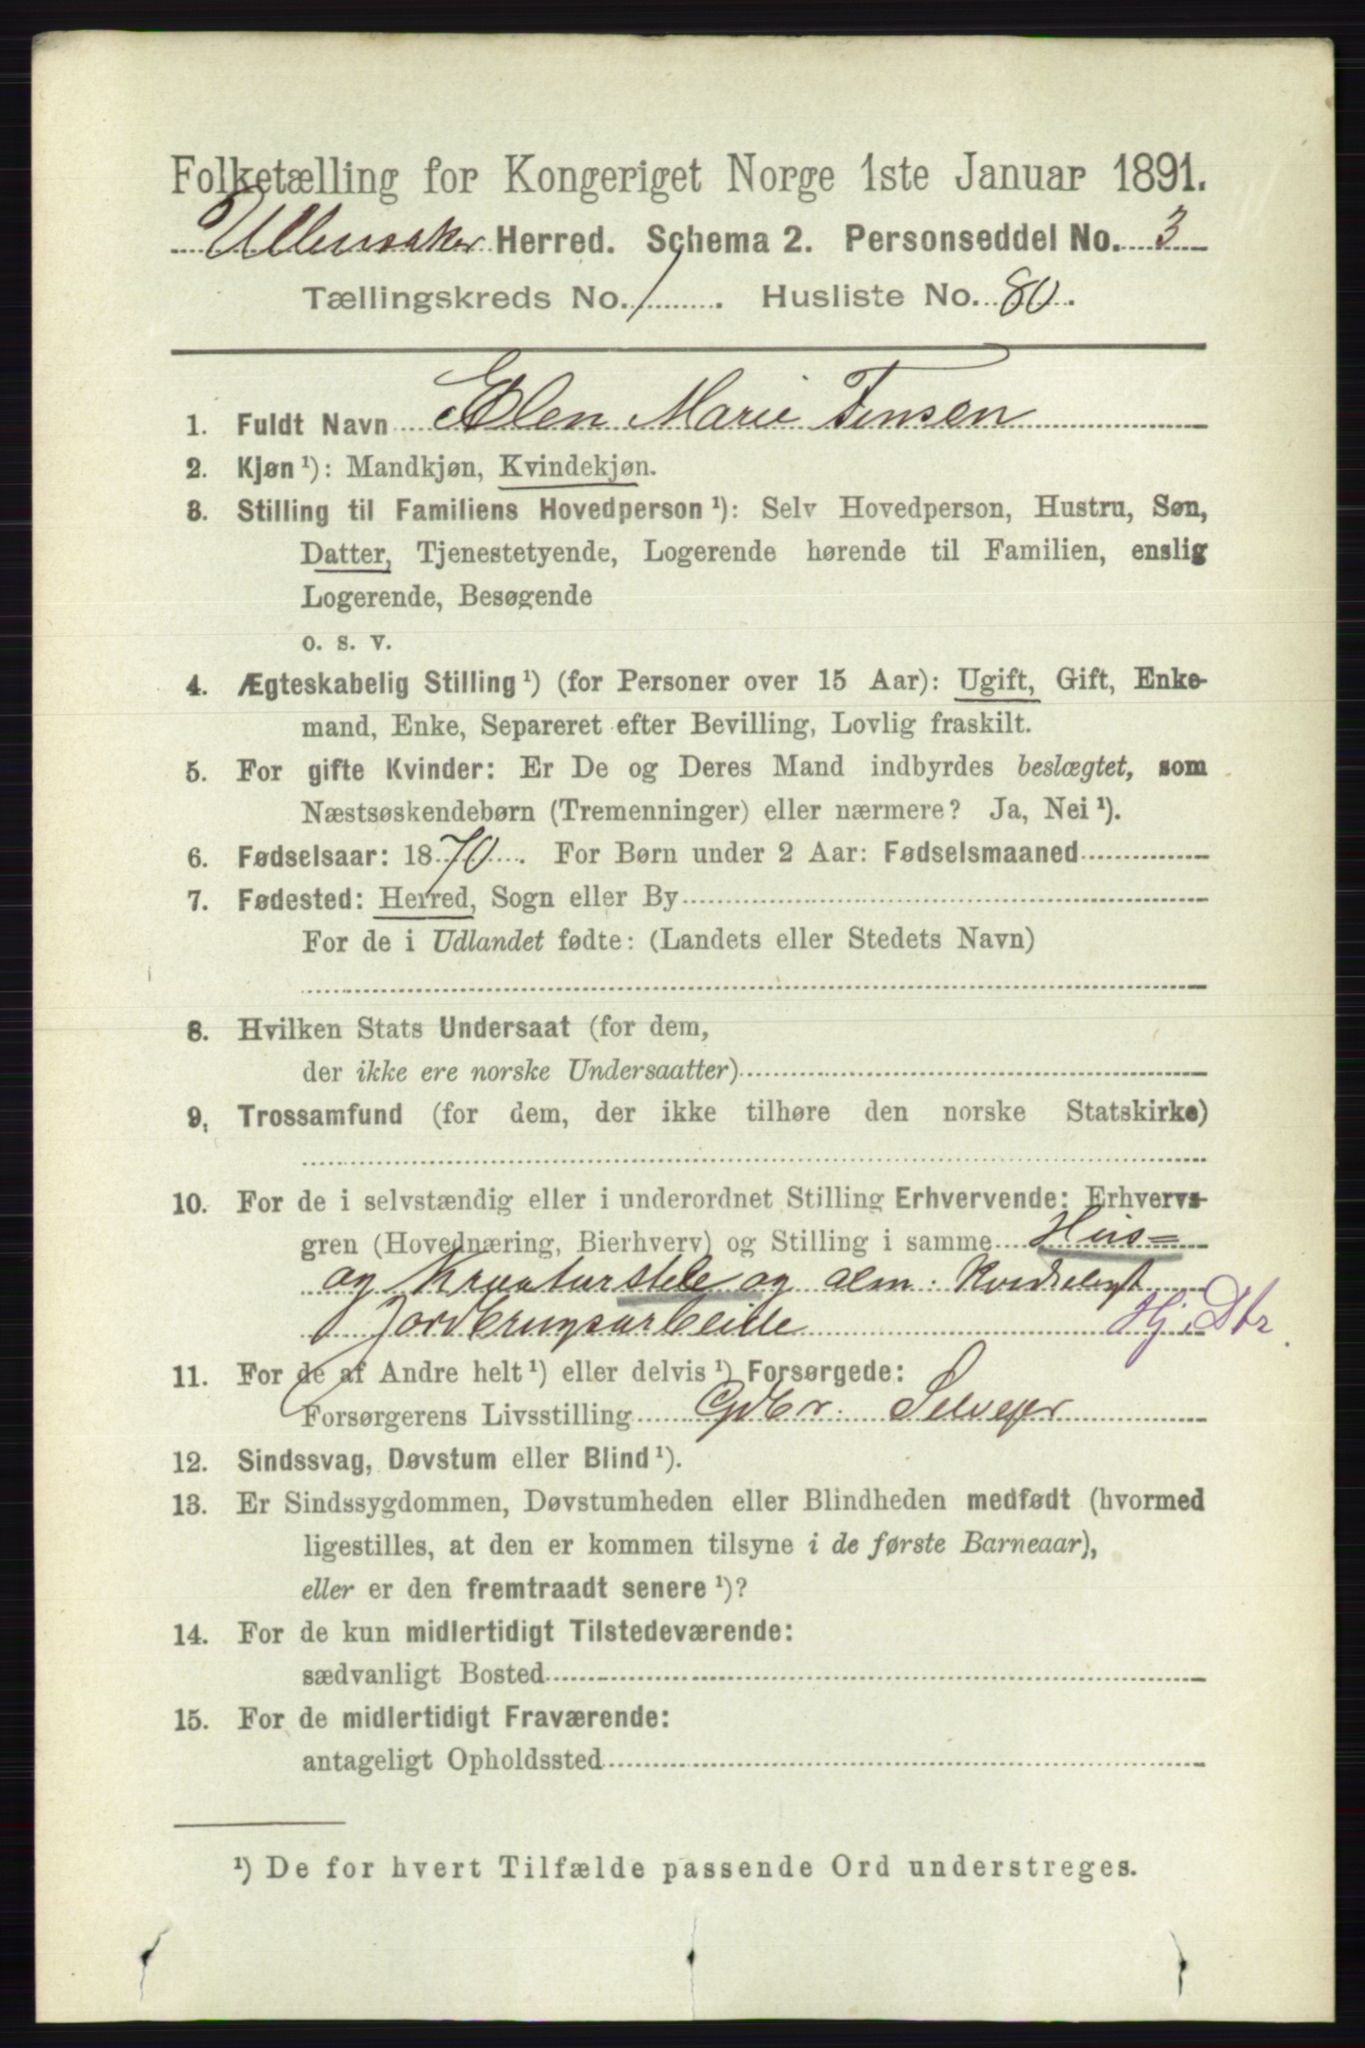 Folketælling for Kongeriget Norge 1ste Januar 1891.
Ullensaker Herred. Schema 2. Personseddel No. 3
Tællingskreds No. 1. Husliste No. 80.
1. Fuldt Navn Elen Marie Finsen
2. Kjøn ¹): Mandkjøn, Kvindekjøn.
3. Stilling til Familiens Hovedperson ¹): Selv Hovedperson, Hustru, Søn,
Datter, Tjenestetyende, Logerende hørende til Familien, enslig
Logerende, Besøgende
o. s. v.
4. Ægteskabelig Stilling ¹) (for Personer over 15 Aar): Ugift, Gift, Enke-
mand, Enke, Separeret efter Bevilling, Lovlig fraskilt.
5. For gifte Kvinder: Er De og Deres Mand indbyrdes beslægtet, som
Næstsøskendebørn (Tremenninger) eller nærmere? Ja, Nei ¹).
6. Fødselsaar: 1870. For Børn under 2 Aar: Fødselsmaaned
7. Fødested: Herred, Sogn eller By
For de i Udlandet fødte: (Landets eller Stedets Navn)
8. Hvilken Stats Undersaat (for dem,
der ikke ere norske Undersaatter)
9. Trossamfund (for dem, der ikke tilhøre den norske Statskirke)
10. For de i selvstændig eller i underordnet Stilling Erhvervende: Erhvervs-
gren (Hovednæring, Bierhverv) og Stilling i samme Hus=
og Kreaturstele og alm. Kvindeligt
Jordbrugsarbeide Hj. Dtr.
11. For de af Andre helt ¹) eller delvis ¹) Forsørgede:
Forsørgerens Livsstilling Gdbr. Selveier
12. Sindssvag, Døvstum eller Blind ¹).
13. Er Sindssygdommen, Døvstumheden eller Blindheden medfødt (hvormed
ligestilles, at den er kommen tilsyne i de første Barneaar),
eller er den fremtraadt senere ¹)?
14. For de kun midlertidigt Tilstedeværende:
sædvanligt Bosted
15. For de midlertidigt Fraværende:
antageligt Opholdssted
¹) De for hvert Tilfælde passende Ord understreges.